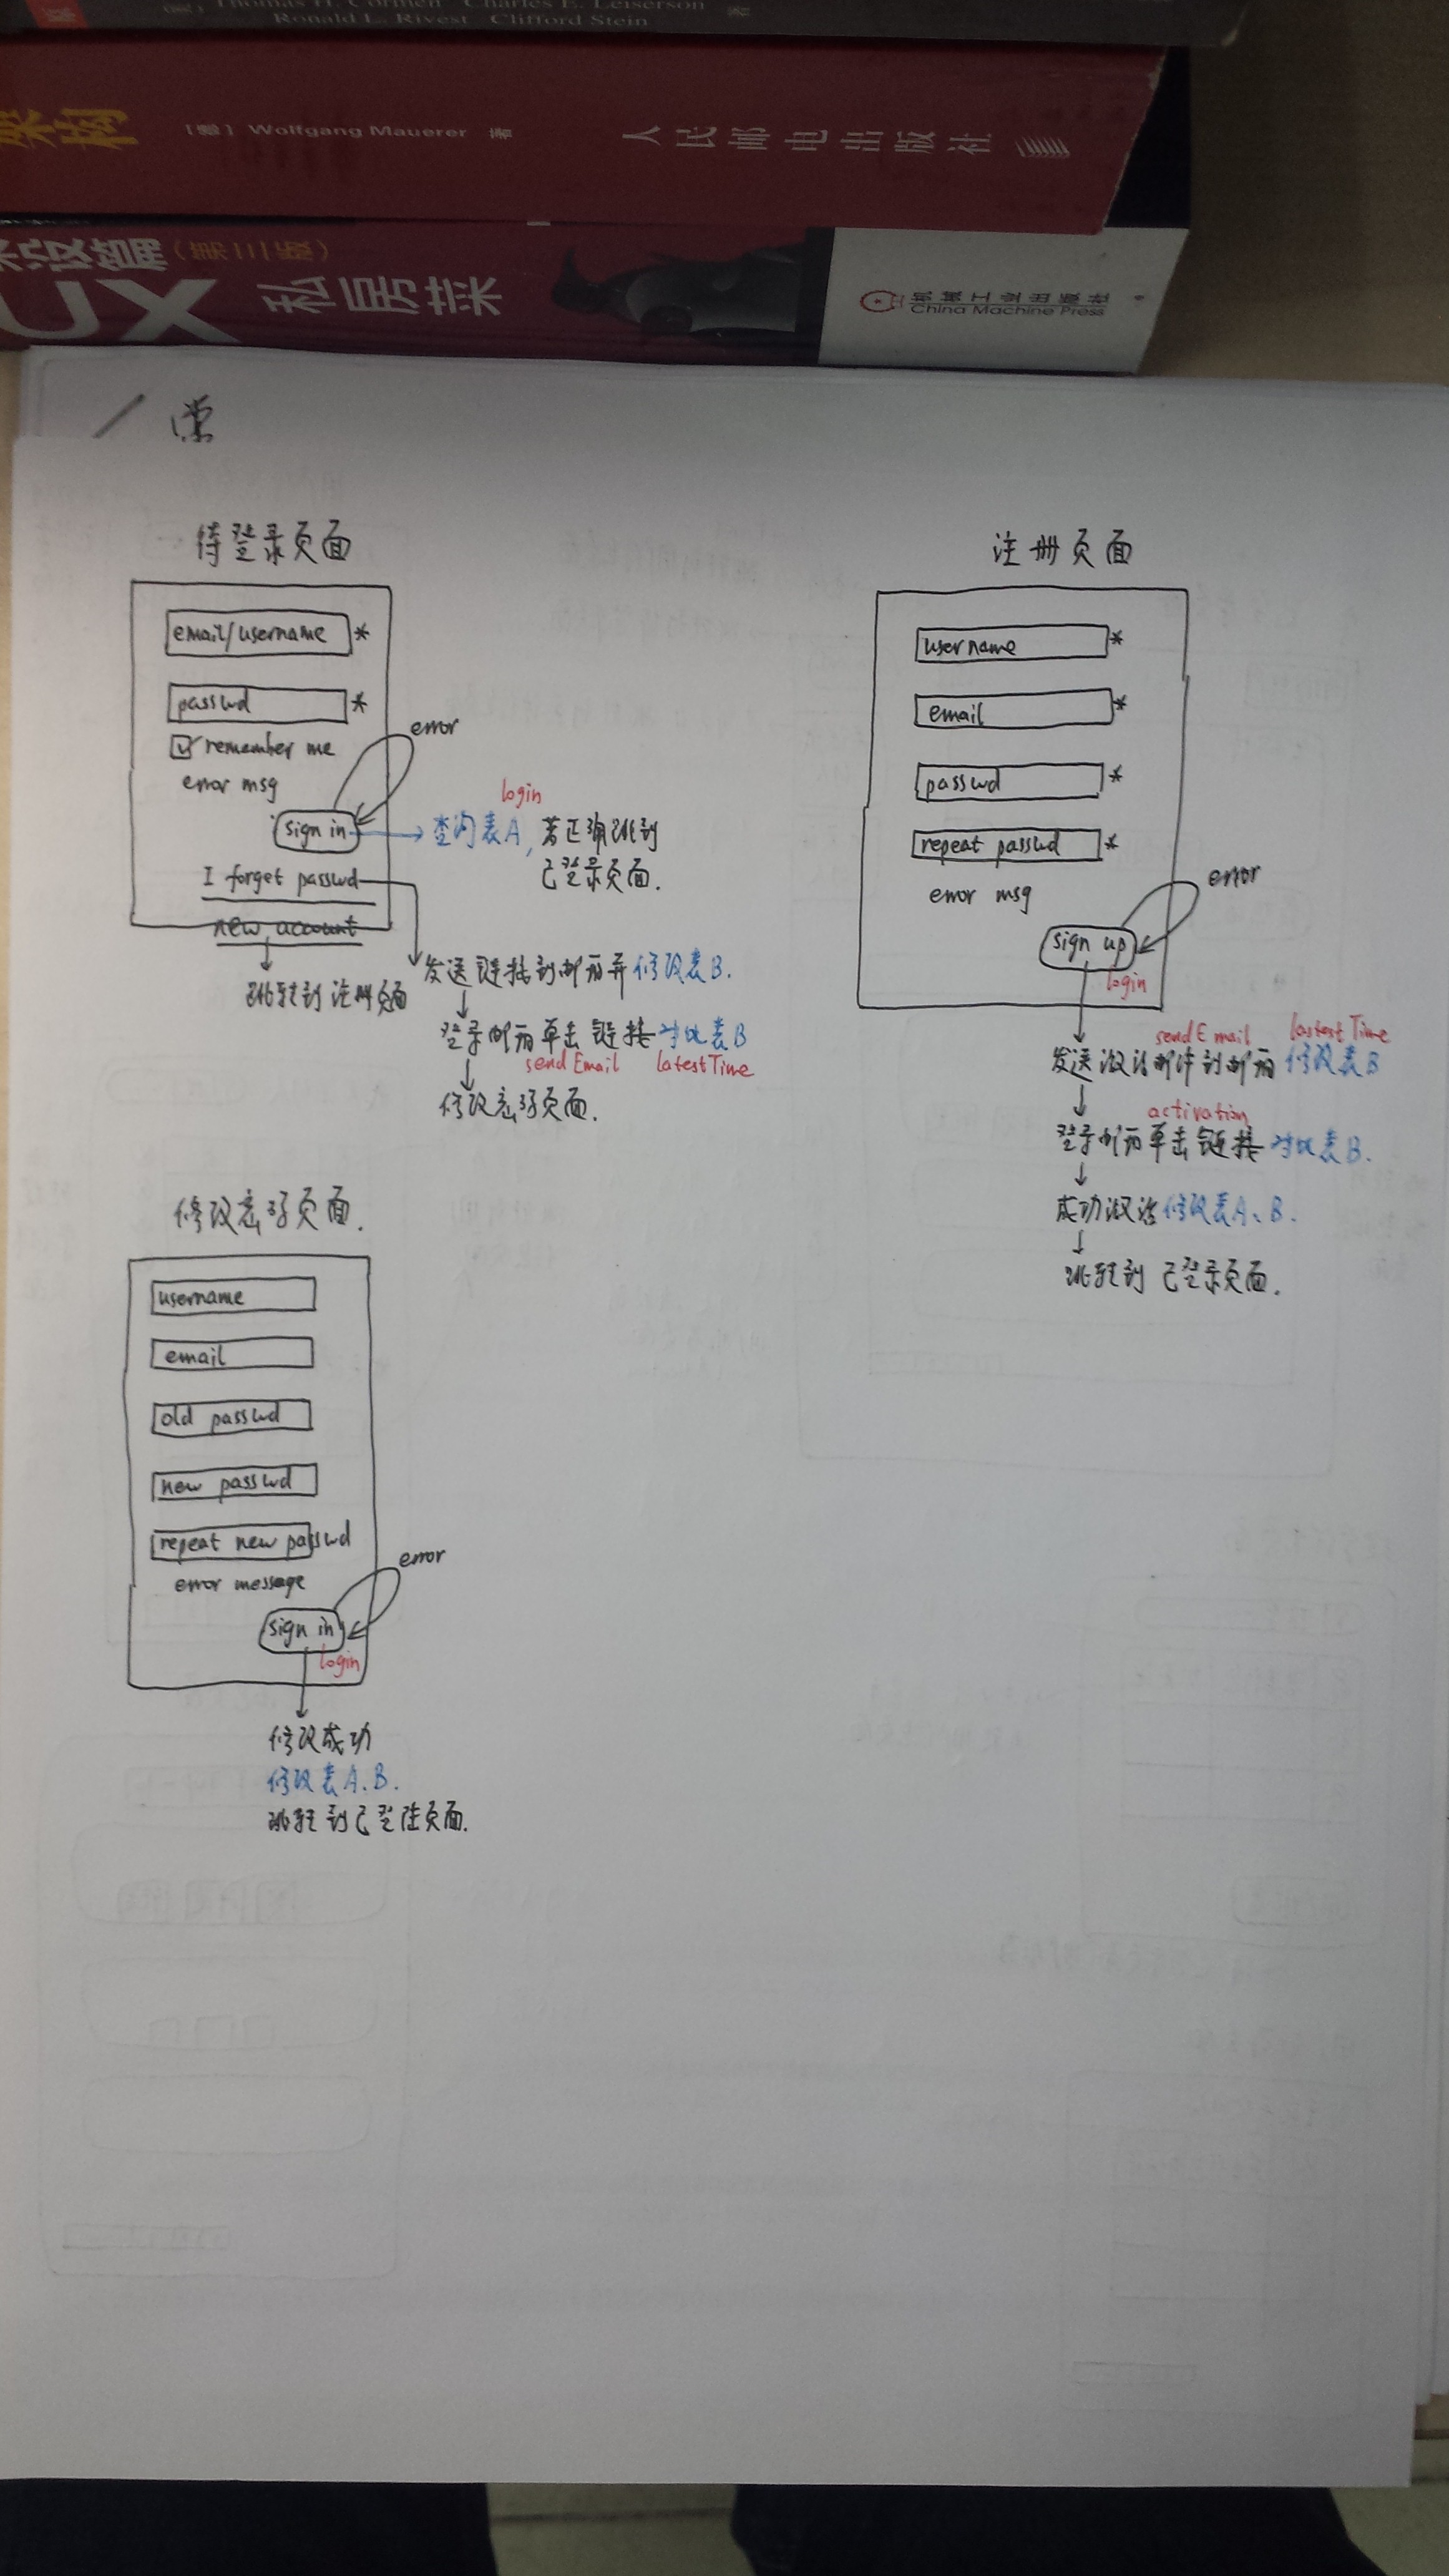 Thomas H. Cormen Charles E. Leiserson 著
Ronald L. Rivest Clifford Stein
架构
[德] Wolfgang Mauerer 著
人民邮电出版社
(第二版)
私房菜
机械工业出版社
China Machine Press
待登录页面
email/username *
passwd *
remember me
error msg
error
sign in
login
查询表A, 若正确跳到
已登录页面.
I forget passwd
new account
跳转到注册页面
发送链接到邮箱并修改表B.
登录邮箱单击链接对比表B
sendEmail latestTime
修改密码页面.
注册页面
username *
email *
passwd *
repeat passwd *
error msg
error
sign up
login
sendEmail lastestTime
发送激活邮件到邮箱 修改表B
activation
登录邮箱单击链接 对比表B.
成功激活修改表A、B.
跳转到 已登录页面.
修改密码页面.
username
email
old passwd
new passwd
repeat new passwd
error message
error
sign in
login
修改成功
修改表A.B.
跳转到已登陆页面.